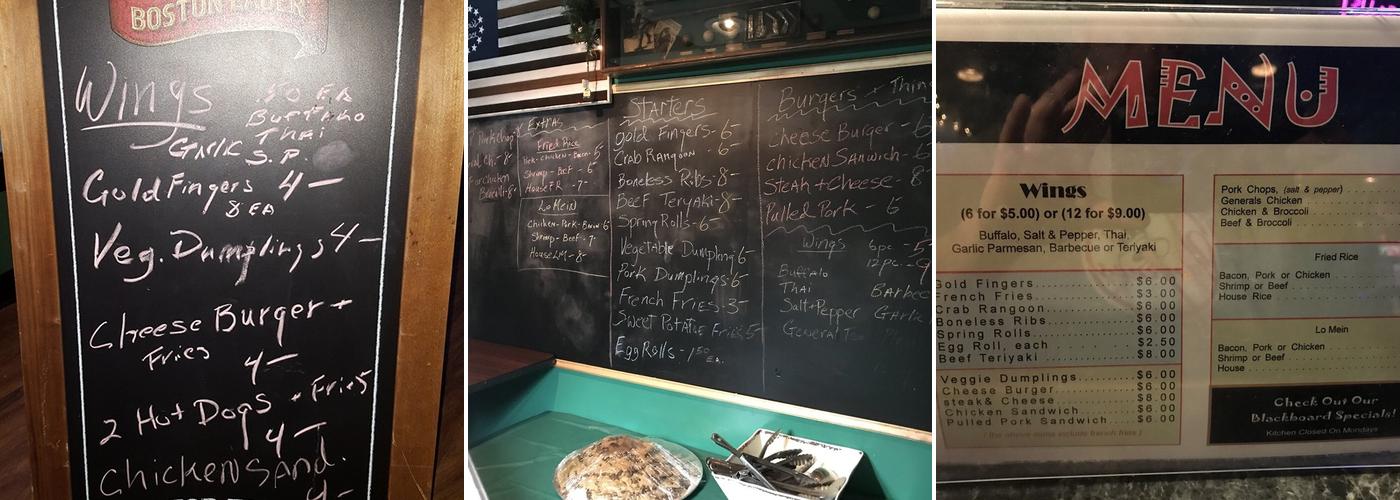 BOSTON LAGER
Wings
50 EA
Buffalo
Thai
Garlic S.P.
Gold Fingers 4-
8 EA
Veg. Dumplings 4-
Cheese Burger +
Fries
4-
2 Hot Dogs + Fries
4-
Chicken Sand.
4-
Extras
Fried Rice
Pork-Chicken-Bacon-5
Shrimp-Beef-6
House F.R. -7-
Lo Mein
Chicken-Pork-Bacon 6
Shrimp-Beef-7-
House LM-8-
Starters
Gold Fingers-6-
Crab Rangoon-6-
Boneless Ribs-8-
Beef Teryaki-8-
Spring Rolls-6-
Vegetable Dumpling 6-
Pork Dumplings-6-
French Fries-3-
Sweet Potatoe Fries 5-
Egg Rolls-1 50 EA.
Burgers + Thin
Cheese Burger-6
Chicken Sandwich-6
Steak + Cheese-8-
Pulled Pork-6
Wings 6pc.-5-
12pc.-9
Buffalo
Thai Barbec
Salt+Pepper Garlic
General Tso
MENU
Wings
(6 for $5.00) or (12 for $9.00)
Buffalo, Salt & Pepper, Thai,
Garlic Parmesan, Barbecue or Teriyaki
Gold Fingers $6.00
French Fries $3.00
Crab Rangoon $6.00
Boneless Ribs $6.00
Spring Rolls $6.00
Egg Roll, each $2.50
Beef Teriyaki $8.00
Veggie Dumplings $6.00
Cheese Burger $6.00
steak& Cheese $8.00
Chicken Sandwich $6.00
Pulled Pork Sandwich $6.00
( the above items include french fries )
Pork Chops, (salt & pepper)
Generals Chicken
Chicken & Broccoli
Beef & Broccoli
Fried Rice
Bacon, Pork or Chicken
Shrimp or Beef
House Rice
Lo Mein
Bacon, Pork or Chicken
Shrimp or Beef
House
Check Out Our
Blackboard Specials!
Kitchen Closed On Mondays